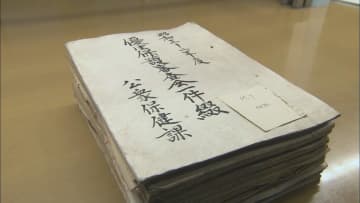 昭和三十三年度
優生保護審査会一件綴
公衆保健課